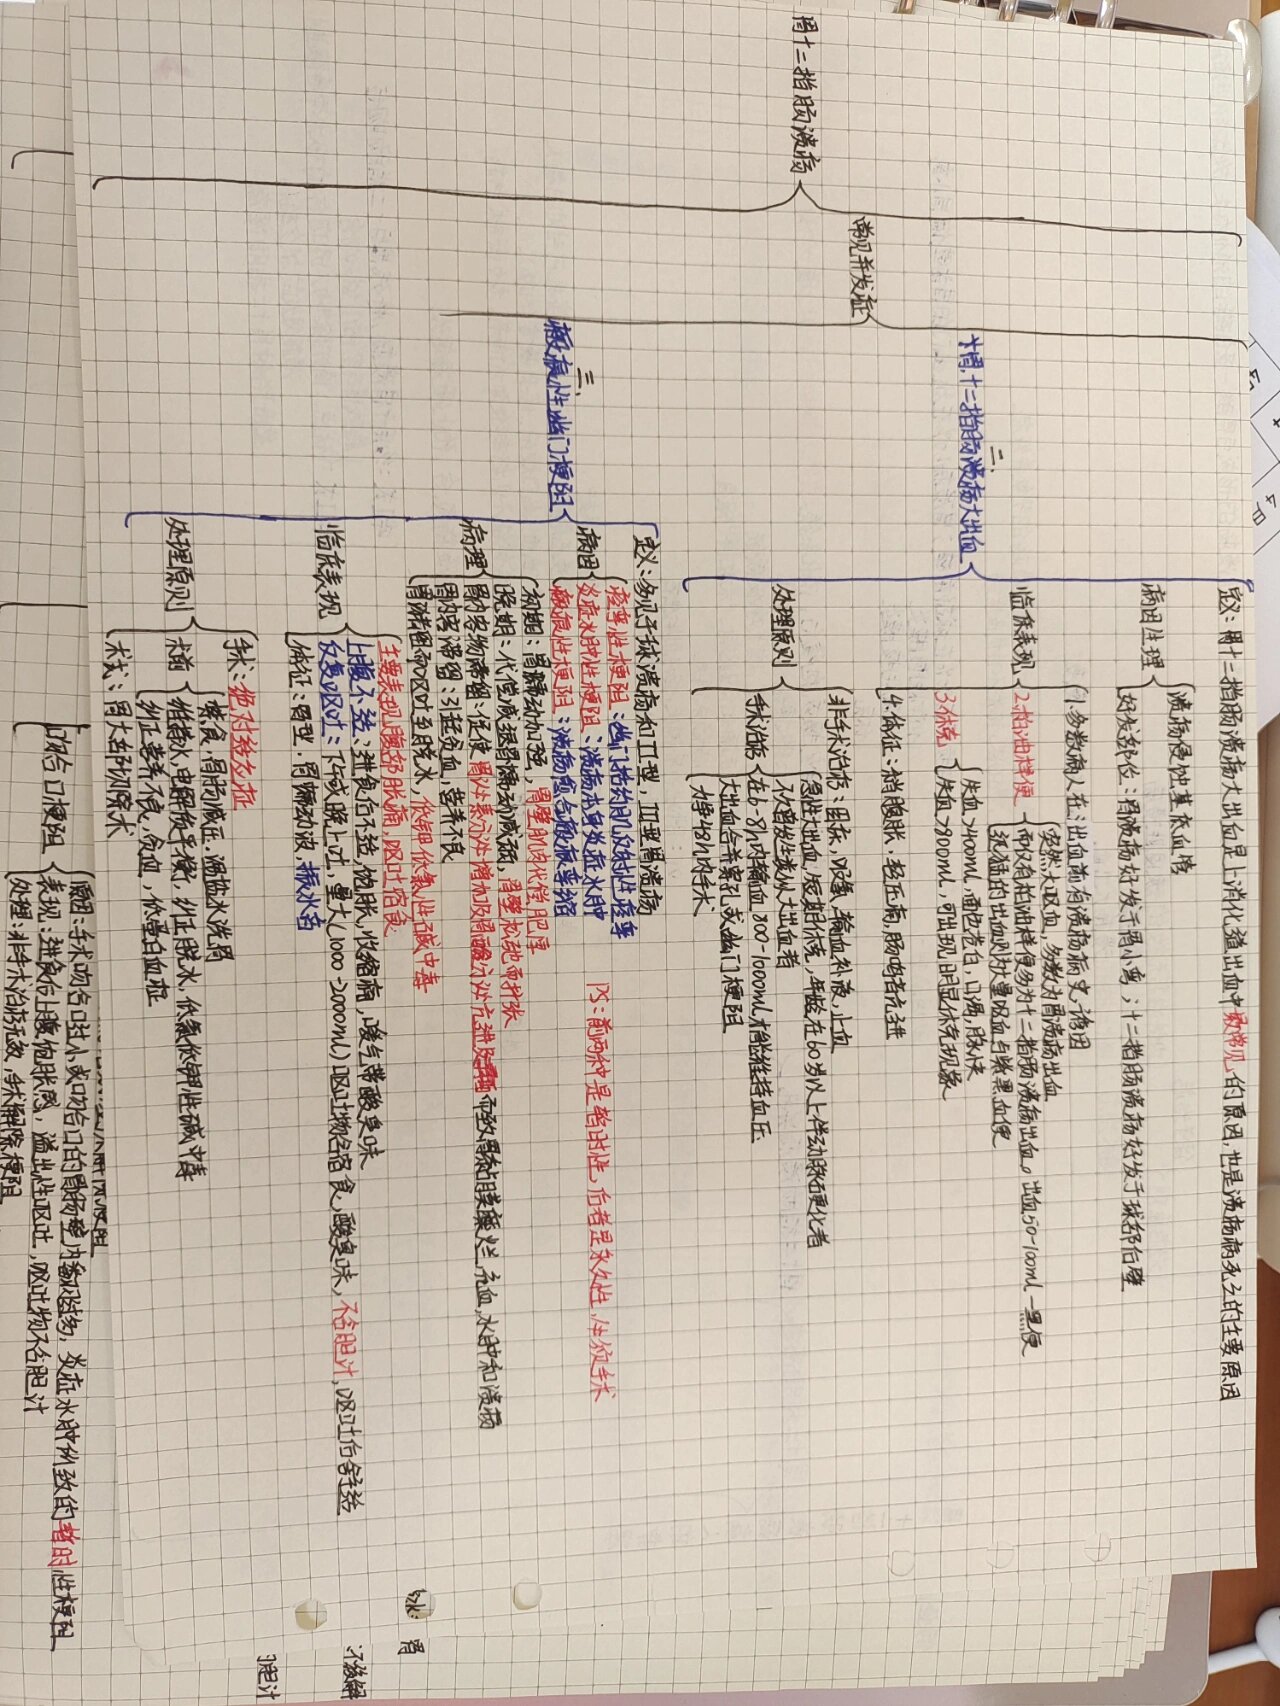 胃十二指肠溃疡
常见并发症
二.
胃.十二指肠溃疡大出血
定义：胃十二指肠溃疡大出血是上消化道出血中最常见的原因,也是溃疡病死亡的主要原因
病因生理
溃疡侵蚀基底血管
好发部位：胃溃疡好发于胃小弯；十二指肠溃疡好发于球部后壁
临床表现
1.多数病人在出血前有溃疡病史,诱因
2.柏油样便
突然大呕血,多数为胃溃疡出血
而仅有柏油样便多为十二指肠溃疡出血。出血50-100ml—黑便
迅猛的出血则为大量呕血与紫黑血便
3.休克
失血>400ml,面色苍白,口渴,脉快
失血>800ml,可出现明显休克现象
4.体征：稍腹胀,轻压痛,肠鸣音亢进
处理原则
非手术治疗：困表,吸氧,输血补液,止血
手术治疗
急性大出血,短期休克,年龄在60岁以上伴动脉硬化者
不久曾发生类似大出血者
在6-8h内输血800-1000ml才能维持血压
大出血合并穿孔或幽门梗阻
力争48h内手术
三.
瘢痕性幽门梗阻
定义：多见于球溃疡和II型,III型胃溃疡
病因
痉挛性梗阻：幽门括约肌反射性痉挛
炎症水肿性梗阻：溃疡本身炎症水肿
瘢痕性梗阻：溃疡愈合瘢痕挛缩
PS：前两种是暂时性,后者是永久性,必须手术
病理
初期：胃蠕动加强,胃壁肌肉代偿肥厚
晚期：代偿减退胃蠕动减弱,胃壁松弛而扩张
胃内容物滞留：促使胃泌素分泌增加及胃酸分泌亢进而致胃黏膜糜烂,充血,水肿和溃疡
胃内容滞留：引起贫血,营养不良
胃潴留而呕吐至脱水,低钾低氯性碱中毒
临床表现
主要表现腹部胀痛,呕吐宿食
上腹不适：进食后不适,饱胀,收缩痛,嗳气带酸臭味
反复呕吐：下午或晚上吐,量大(1000-2000ml)呕吐物含宿食,酸臭味,不含胆汁,呕吐后舒适
体征：胃型.胃蠕动波,振水音
处理原则
手术：绝对适应征
术前
禁食,胃肠减压,温盐水洗胃
维持水,电解质平衡,纠正脱水,低氯低钾性碱中毒
纠正营养不良,贫血,低蛋白血症
术式：胃大部切除术
吻合口梗阻
原因：手术吻合口过小或吻合口的胃肠壁内翻过多,炎症水肿所致的暂时性梗阻
表现：进食后上腹饱胀感,溢出性呕吐,呕吐物不含胆汁
处理：非手术治疗无效,手术解除梗阻
胃
不缓解
胆汁